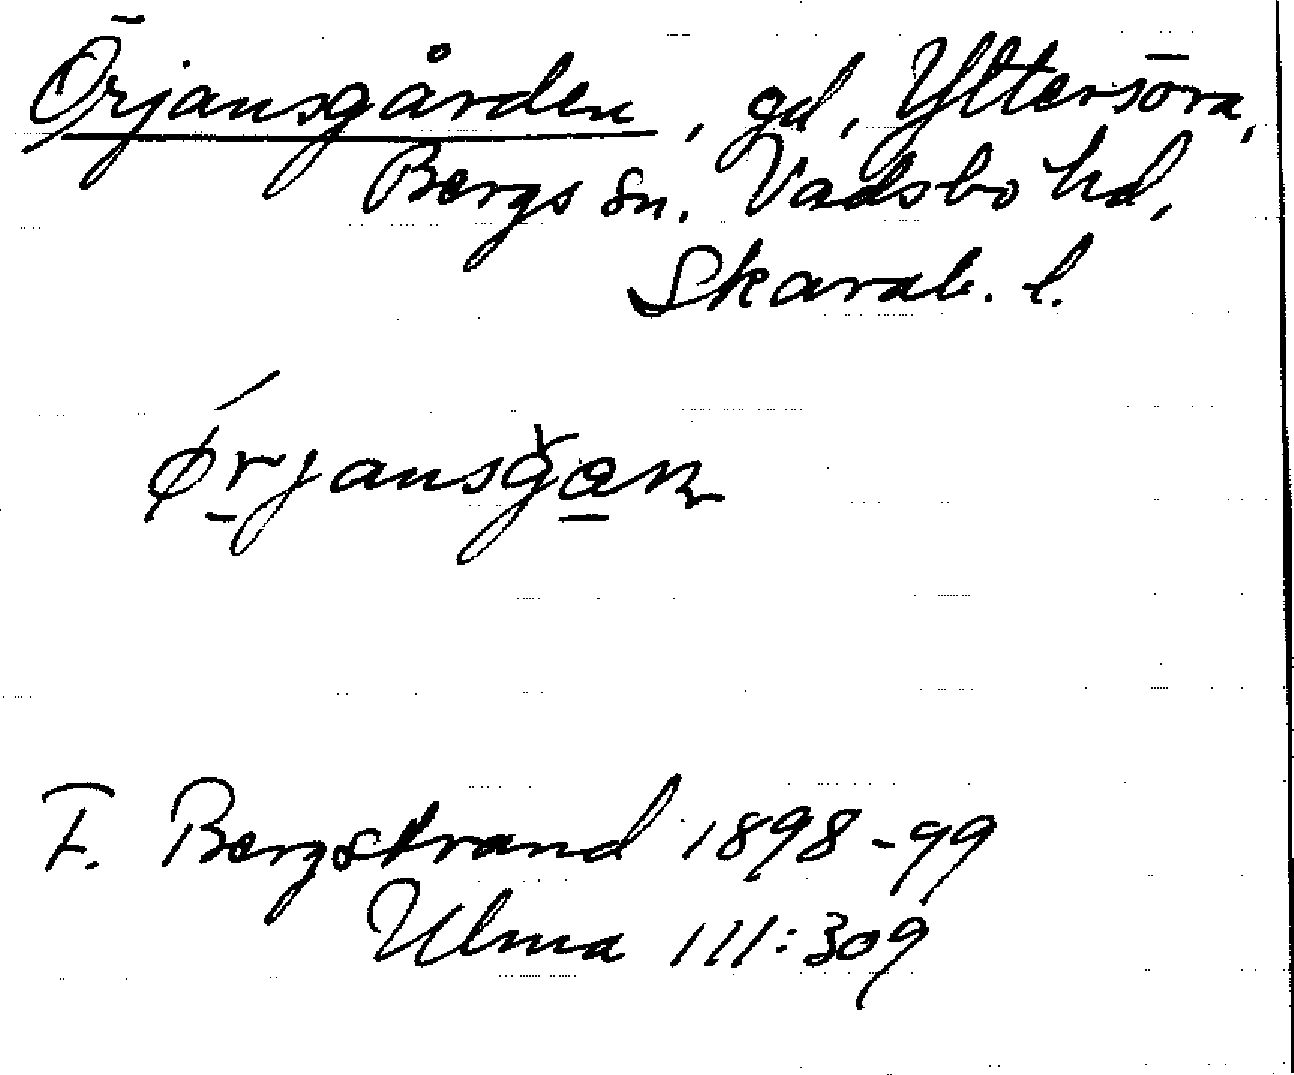 Örjansgården, gd, Yttersöra,
Bergs sn. Vadsbo hd,
Skarab. l.
F. Bergstrand 1898-99
Ulma 111:309